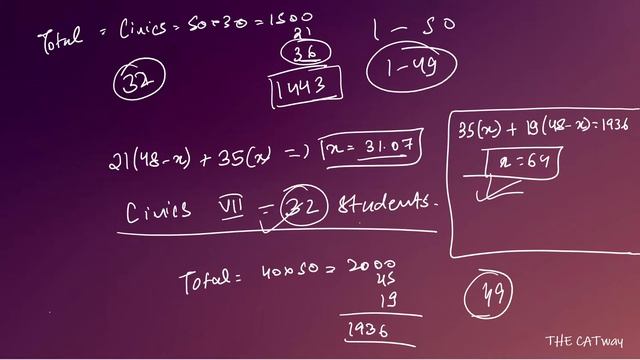 Total = Civics = 50×30 = 1500
21
36
1443
32
1 - 50
1-49
21(48-x) + 35(x) =) x = 31.07
35(x) + 19(48-x)=1936
x=64
Civics VII = 32 students.
Total = 40×50 = 2000
45
19
1936
49
THE CATway